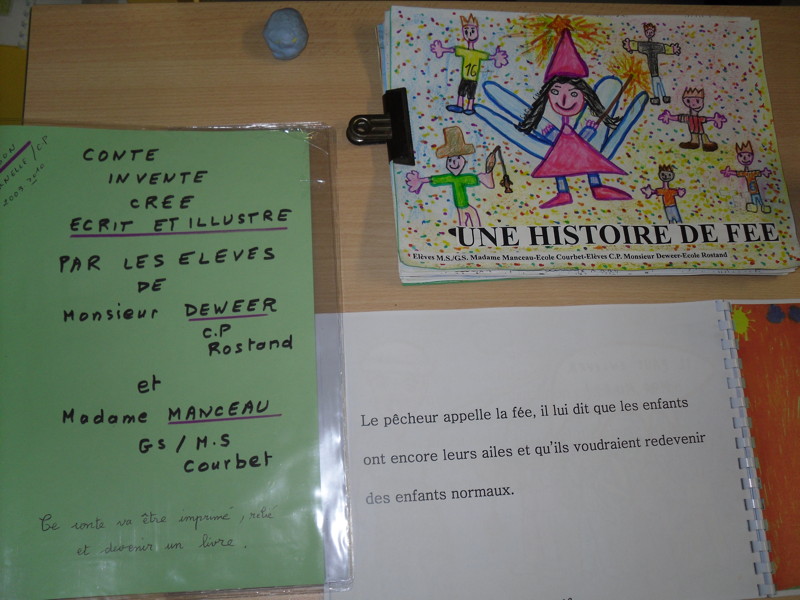 CONTE
INVENTE
CREE
ECRIT ET ILLUSTRE
PAR LES ELEVES
DE
Monsieur DEWEER
C.P
Rostand
et
Madame MANCEAU
GS / M.S
Courbet
Ce conte va être imprimé, relié
et devenir un livre.
2009.2010
16
UNE HISTOIRE DE FEE
Elèves M.S./G.S. Madame Manceau-Ecole Courbet-Elèves C.P. Monsieur Deweer-Ecole Rostand
Le pêcheur appelle la fée, il lui dit que les enfants
ont encore leurs ailes et qu'ils voudraient redevenir
des enfants normaux.